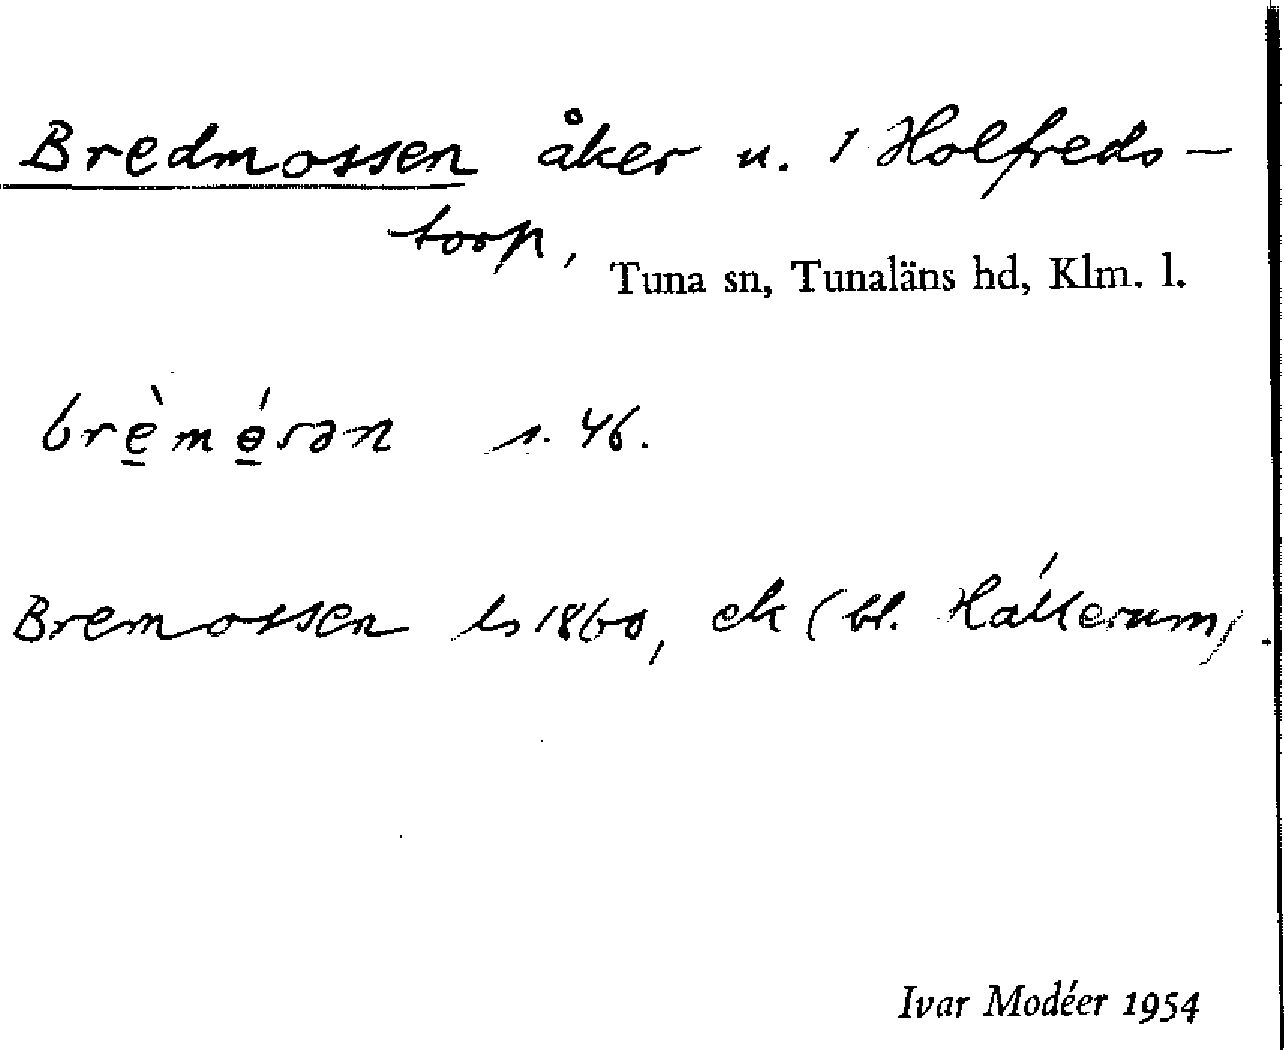 Bredmossen åker u. 1 Holfreds-
torp,
Tuna sn, Tunaläns hd, Klm. l.
brè̱mө̱́sən s. 46.
Bremossen ls 1860, ek (bl. Hállerum).
Ivar Modéer 1954